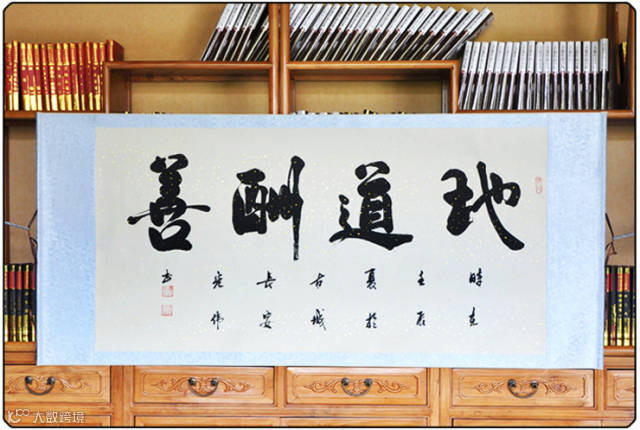 地道酬善
時在
壬辰
夏於
古城
長安
光伟
书
大数跨境